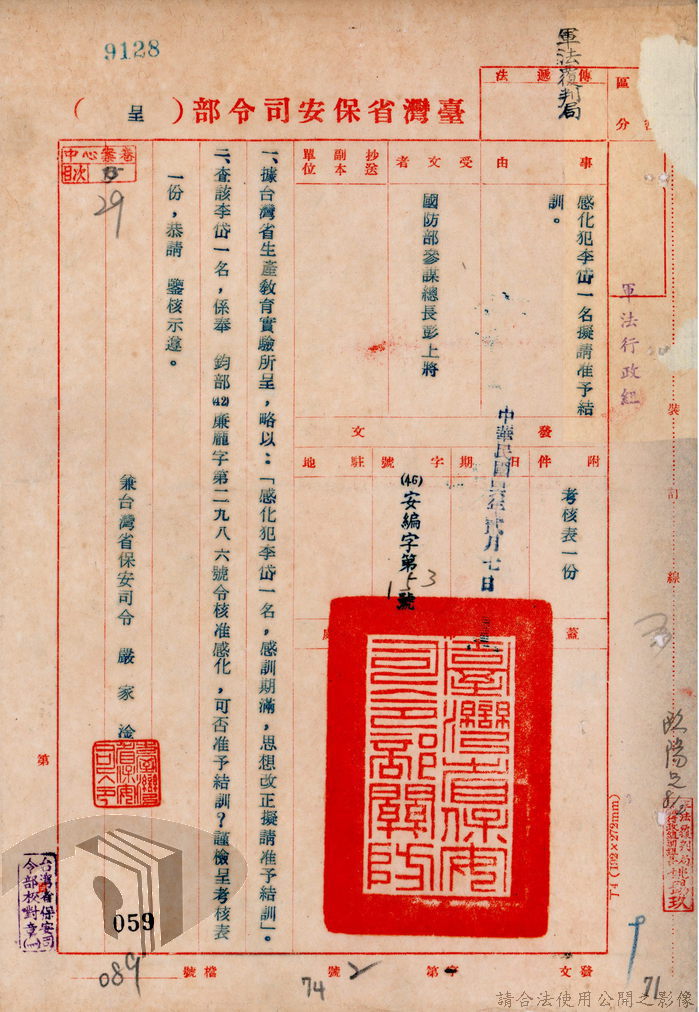 9128
軍法覆判局
法遞傳
區分
臺灣省保安司令部(呈)
事由
感化犯李岱一名擬請准予結
訓。
受文者
國防部參謀總長彭上將
抄送副本單位
發文
附件
考核表一份
日期
中華民國
年貳月七日
字號
(46)安編字第
153號
駐地
蓋
臺灣省保安司令部關防
一、據台灣省生產教育實驗所呈,略以:「感化犯李岱一名,感訓期滿,思想改正擬請准予結訓」。
二、查該李岱一名,係奉 鈞部(42)廉龐字第二九八六號令核准感化,可否准予結訓?謹檢呈考核表
一份,恭請 鑒核示遵。
兼台灣省保安司令 嚴家淦
臺灣省保安司令
中心案卷
目次
29
軍法行政組
裝訂線
歐陽
第
台灣省保安司
令部校對章(一)
059
089
檔號
74
2
發文 字第 號
71
(192×272mm)
請合法使用公開之影像